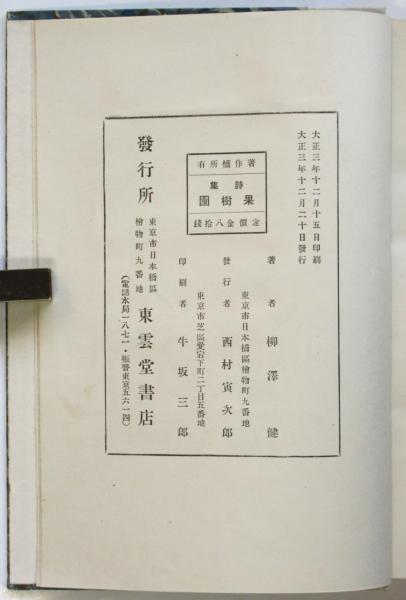 大正三年十二月十五日印刷
大正三年十二月二十日發行
著作權所有
詩集
果樹園
定價金八拾錢
著者 柳澤健
東京市日本橋區檜物町九番地
發行者 西村寅次郎
東京市芝區愛宕下町二丁目五番地
印刷者 牛坂三郎
發行所
東京市日本橋區
檜物町九番地
東雲堂書店
(電話本局一八七一・振替東京五六一四)